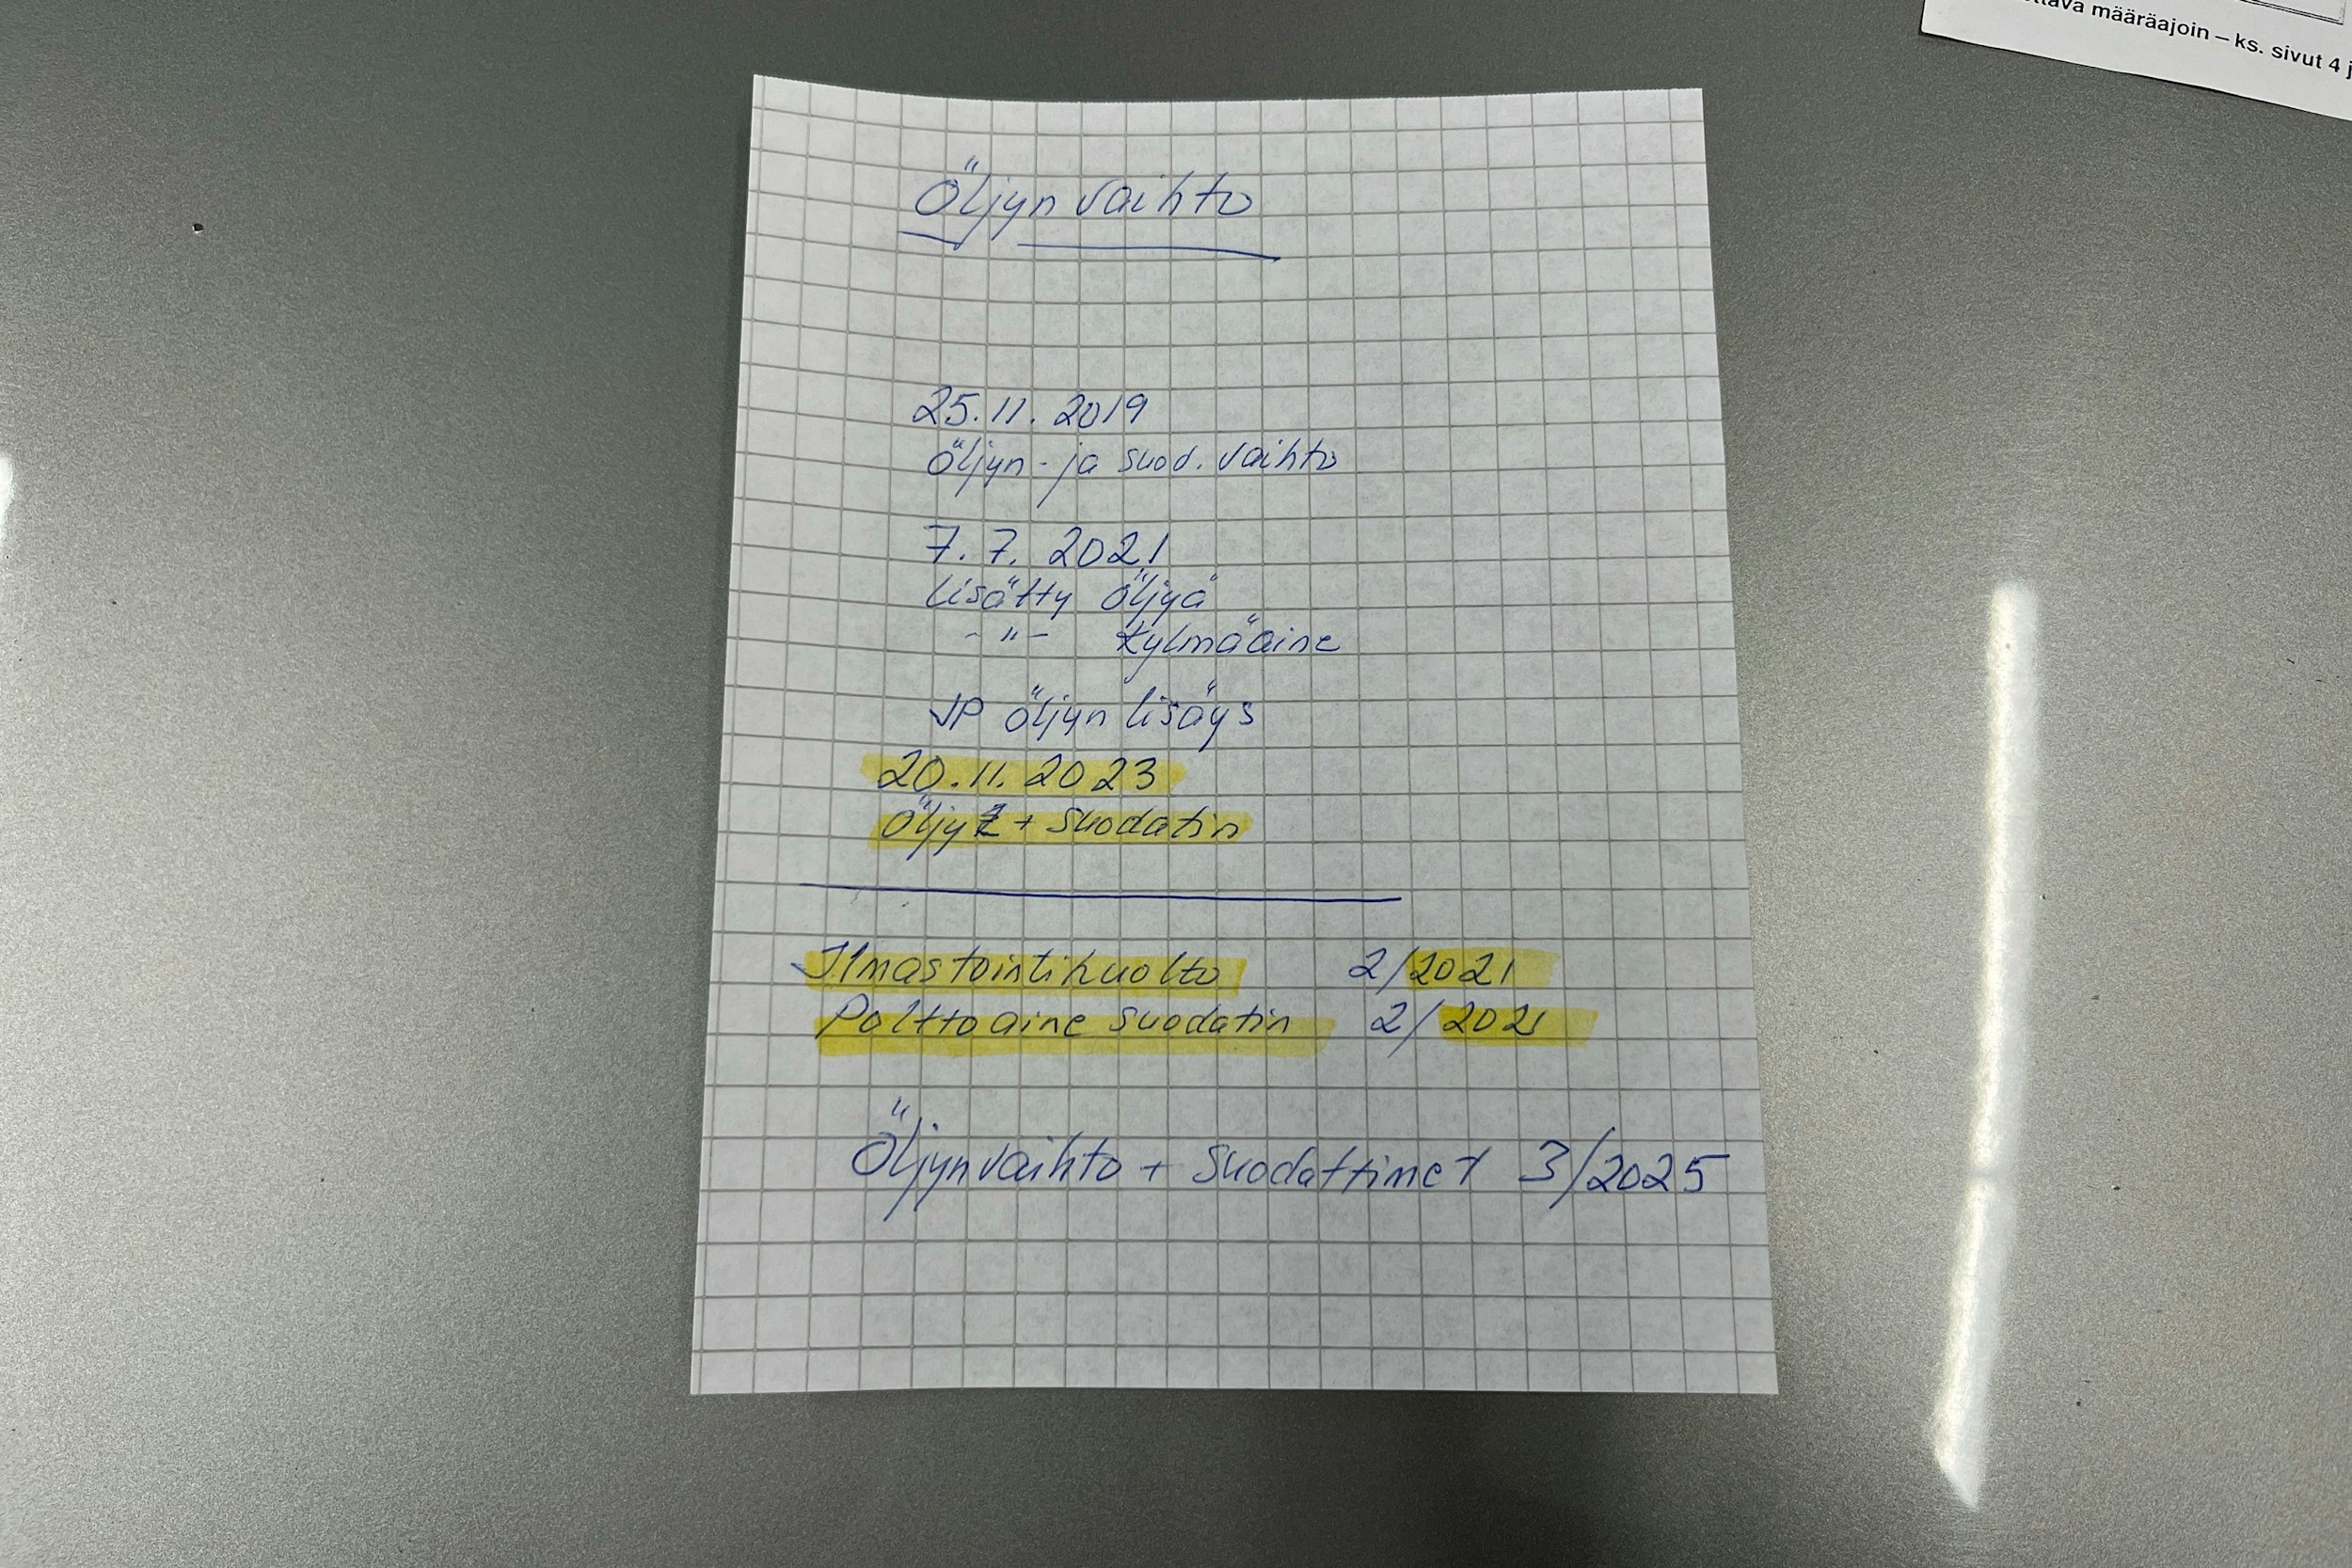 ttava määräajoin – ks. sivut 4 j
Öljyn vaihto
25.11.2019
Öljyn- ja suod. vaihto
7.7.2021
Lisätty öljyä
-"- kylmäaine
JP öljyn lisäys
20.11.2023
Öljy + Suodatin
Ilmastointihuolto 2/2021
Polttoaine suodatin 2/2021
Öljynvaihto + Suodattimet 3/2025